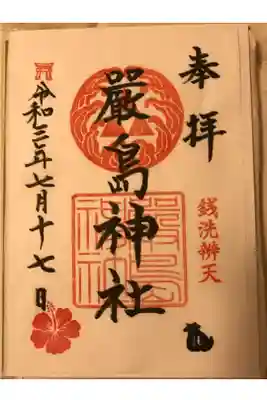 奉拝
銭洗辨天
嚴島神社
令和三年七月十七日